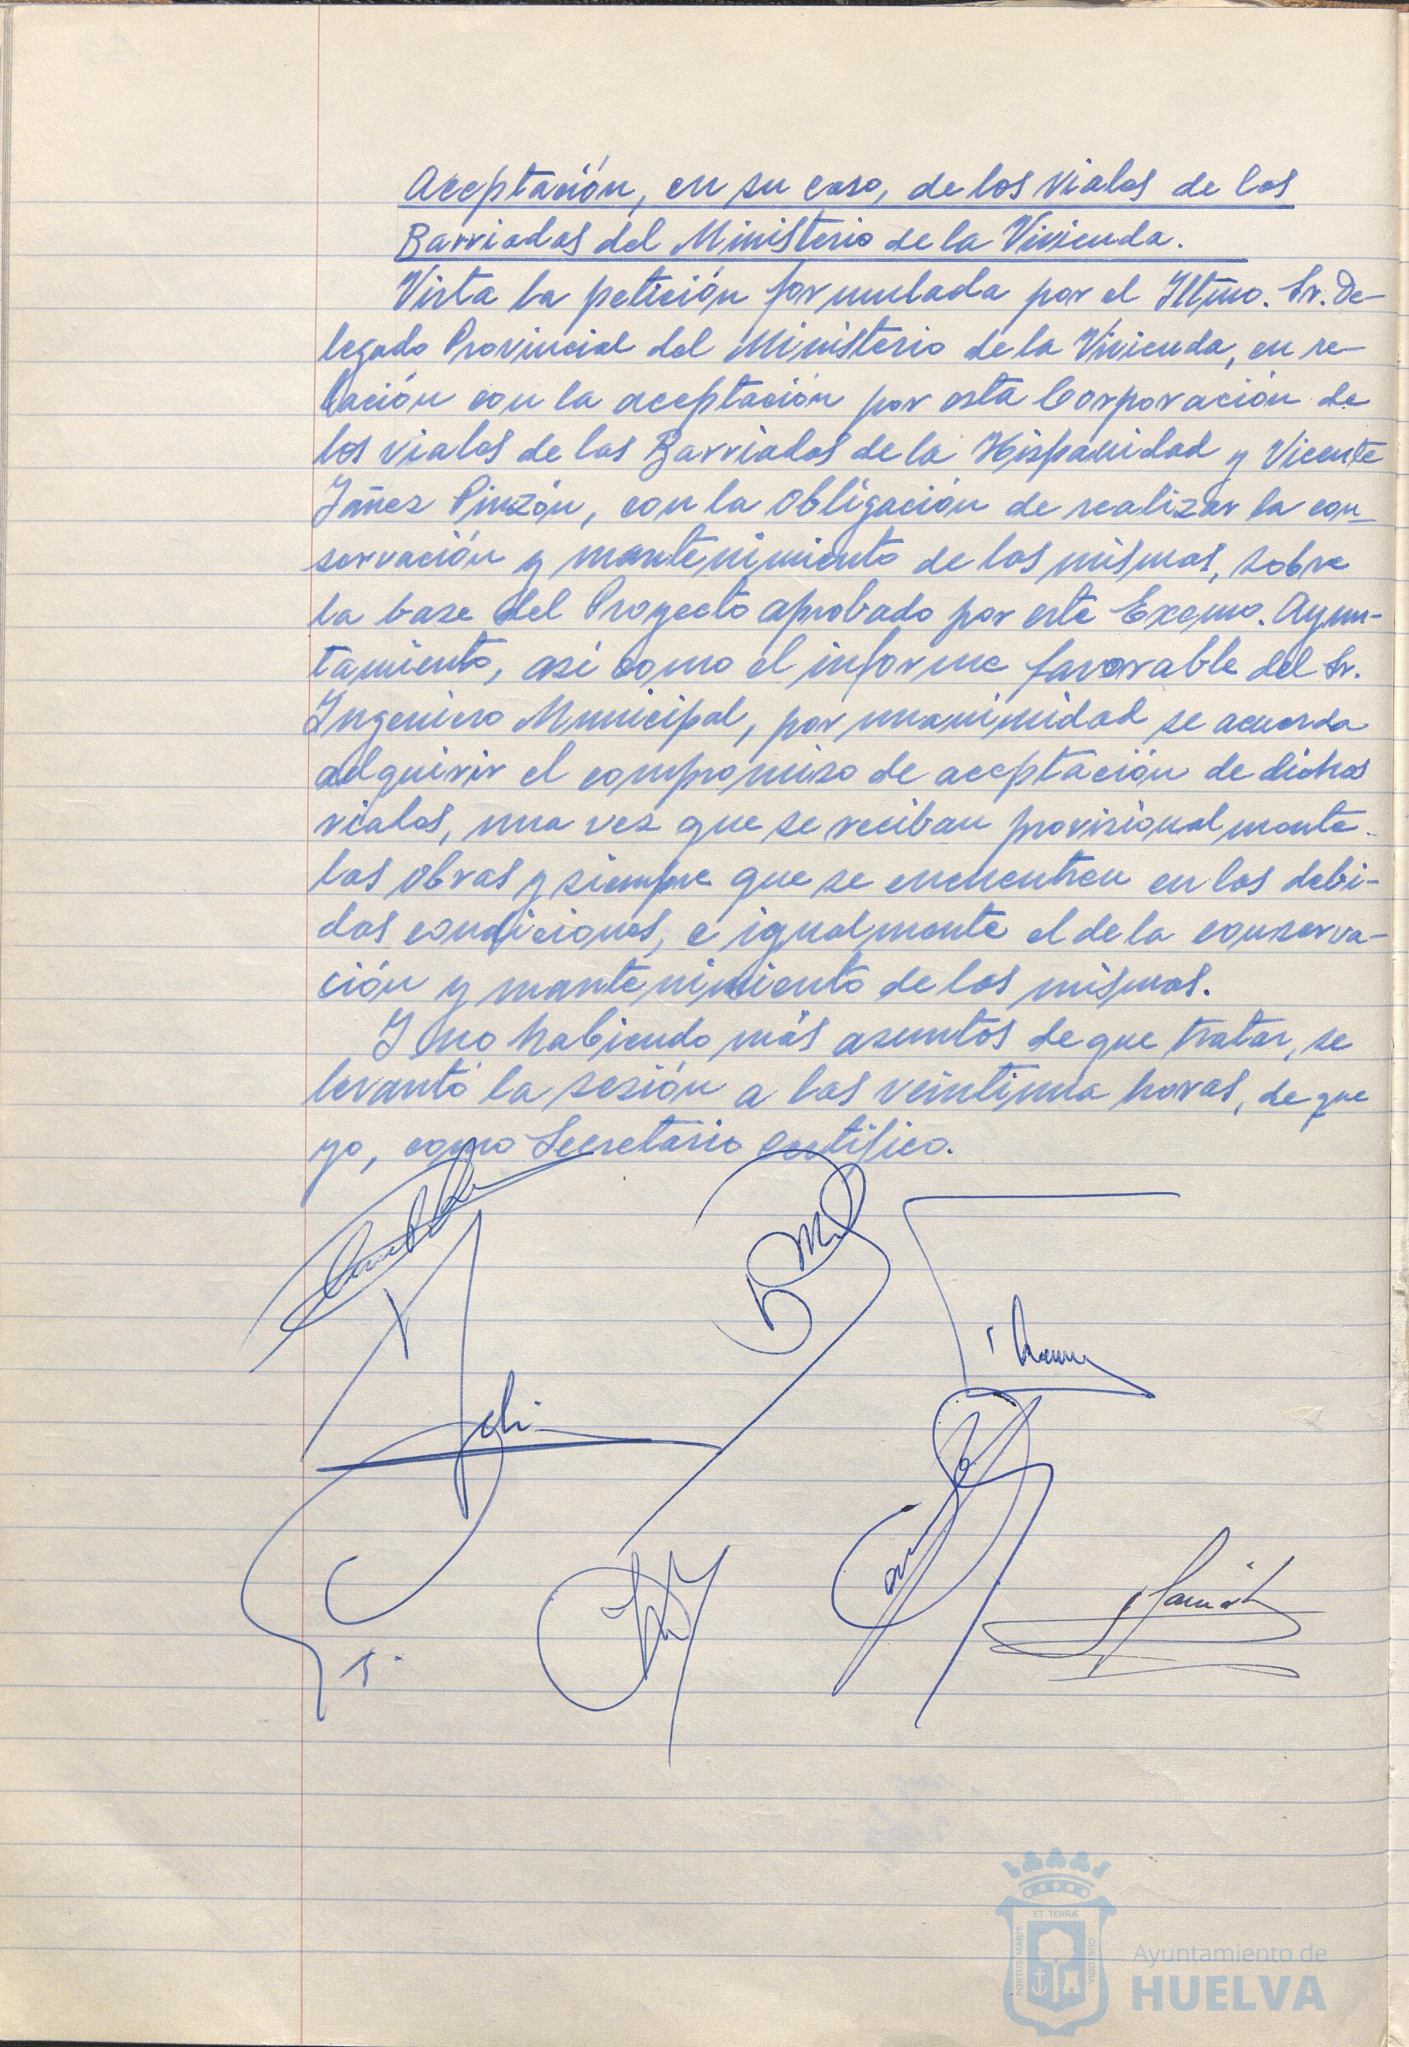 Aceptación, en su caso, de los viales de las
Barriadas del Ministerio de la Vivienda.
Vista la petición formulada por el Iltmo. Sr. De-
legado Provincial del Ministerio de la Vivienda, en re-
lación con la aceptación por esta Corporación de
los viales de las Barriadas de la Hispanidad y Vicente
Yáñez Pinzón, con la obligación de realizar la con-
servación y mantenimiento de los mismos, sobre
la base del Proyecto aprobado por este Excmo. Ayun-
tamiento, así como el informe favorable del Sr.
Ingeniero Municipal, por unanimidad se acuerda
adquirir el compromiso de aceptación de dichos
viales, una vez que se reciban provisionalmente
las obras y siempre que se encuentren en las debi-
das condiciones, e igualmente el de la conserva-
ción y mantenimiento de los mismos.
Y no habiendo más asuntos de que tratar, se
levantó la sesión a las veintiuna horas, de que
yo, como Secretario certifico.
ET TERRÆ
PORTUS MARIS
CUSTODIA
Ayuntamiento de
HUELVA